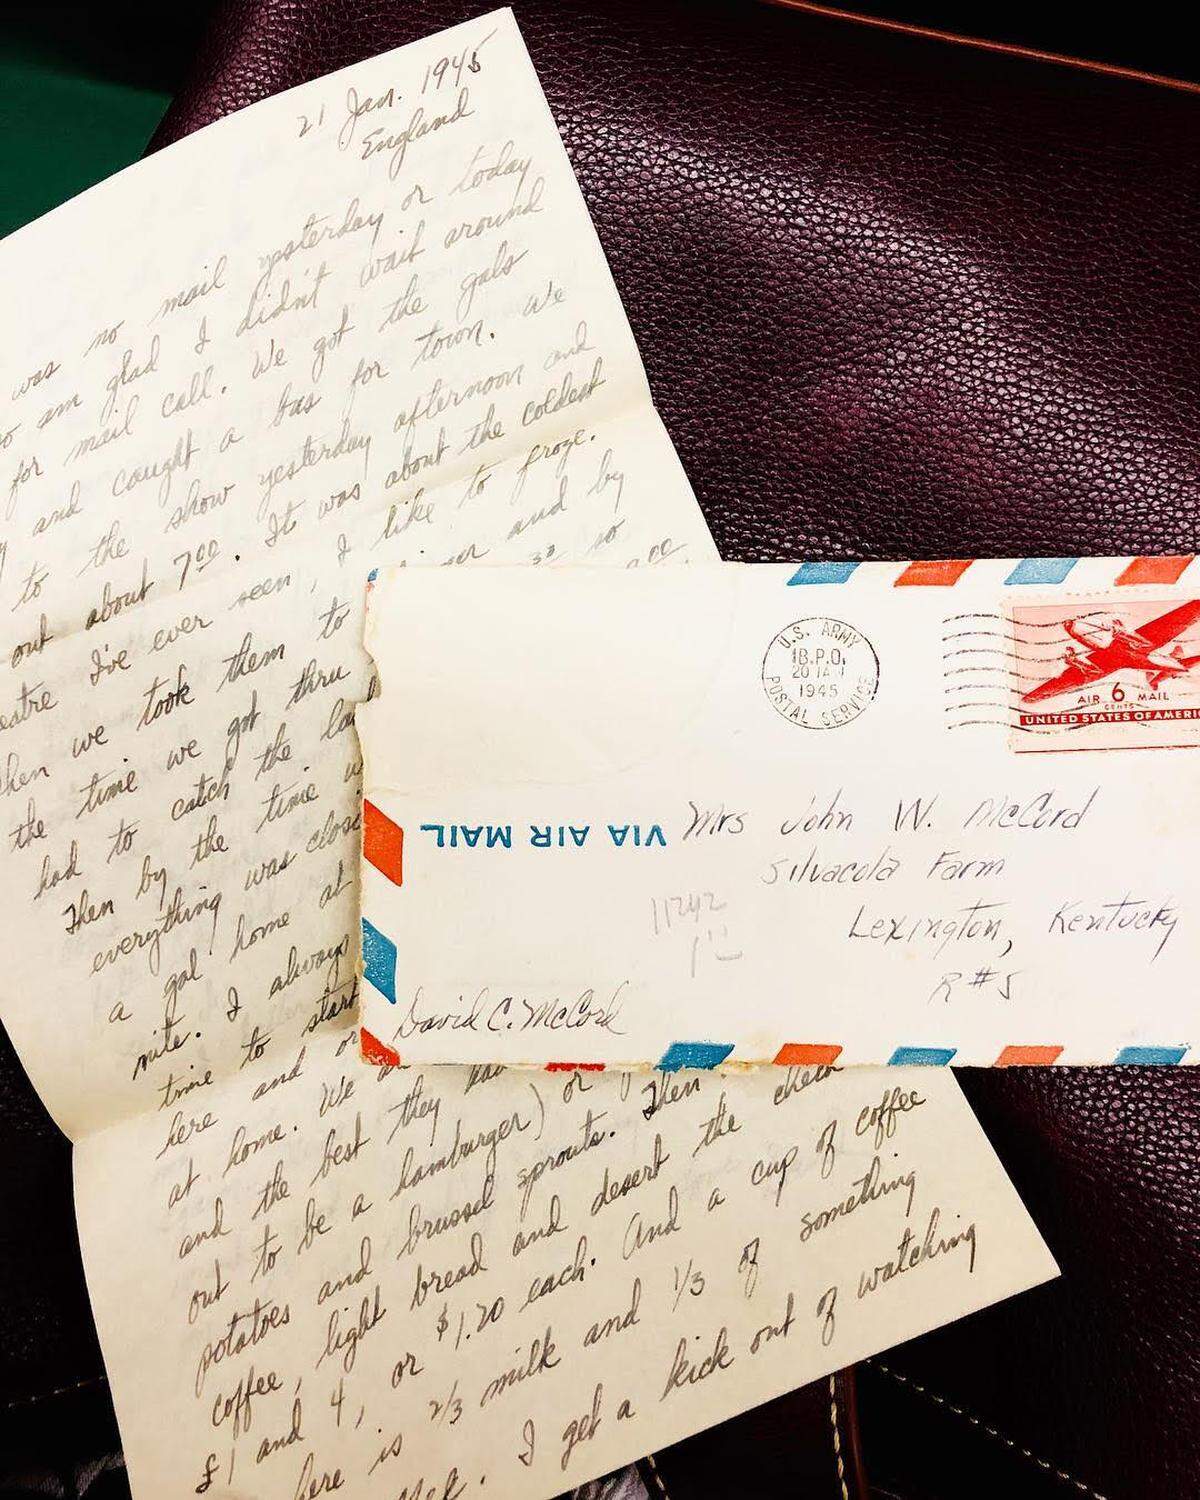 21 Jan. 1945
England
was no mail yesterday or today
so am glad I didn't wait around
for mail call. We got the gals
and caught a bus for town. We
to the show yesterday afternoon and
out about 7:00. It was about the coldest
I've ever seen, I like to froze.
then we took them to and by
the time we got thru 30 so
had to catch the 00.
Then by the time
everything was
a gal home at
nite. I always
time to start
here and or
at home. We
and the best they
out to be a hamburger) or
potatoes and brussel sprouts. Then
coffee, light bread and desert the check
£1 and 4, or $1.20 each. And a cup of coffee
here is 2/3 milk and 1/3 of something
I get a kick out of watching
U.S. ARMY
POSTAL SERVICE
1B.P.O.
20 JAN
1945
AIR 6 MAIL
CENTS
UNITED STATES OF AMERIC
VIA AIR MAIL
Mrs John W. McCord
Silvacola Farm
Lexington, Kentucky
R #5
11242
David C. McCord